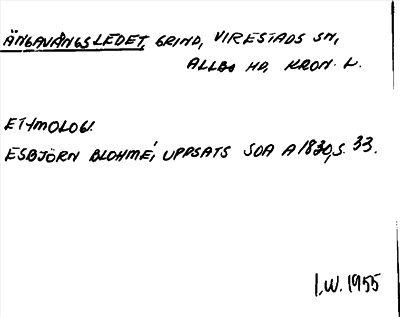 ÄNGAVÅNGSLEDET, GRIND, VIRESTADS SN,
ALLBO HD, KRON. L.
ETYMOLOGI.
ESBJÖRN BLOHMÉ, UPPSATS SOA A 1830, S. 33.
I.W. 1955